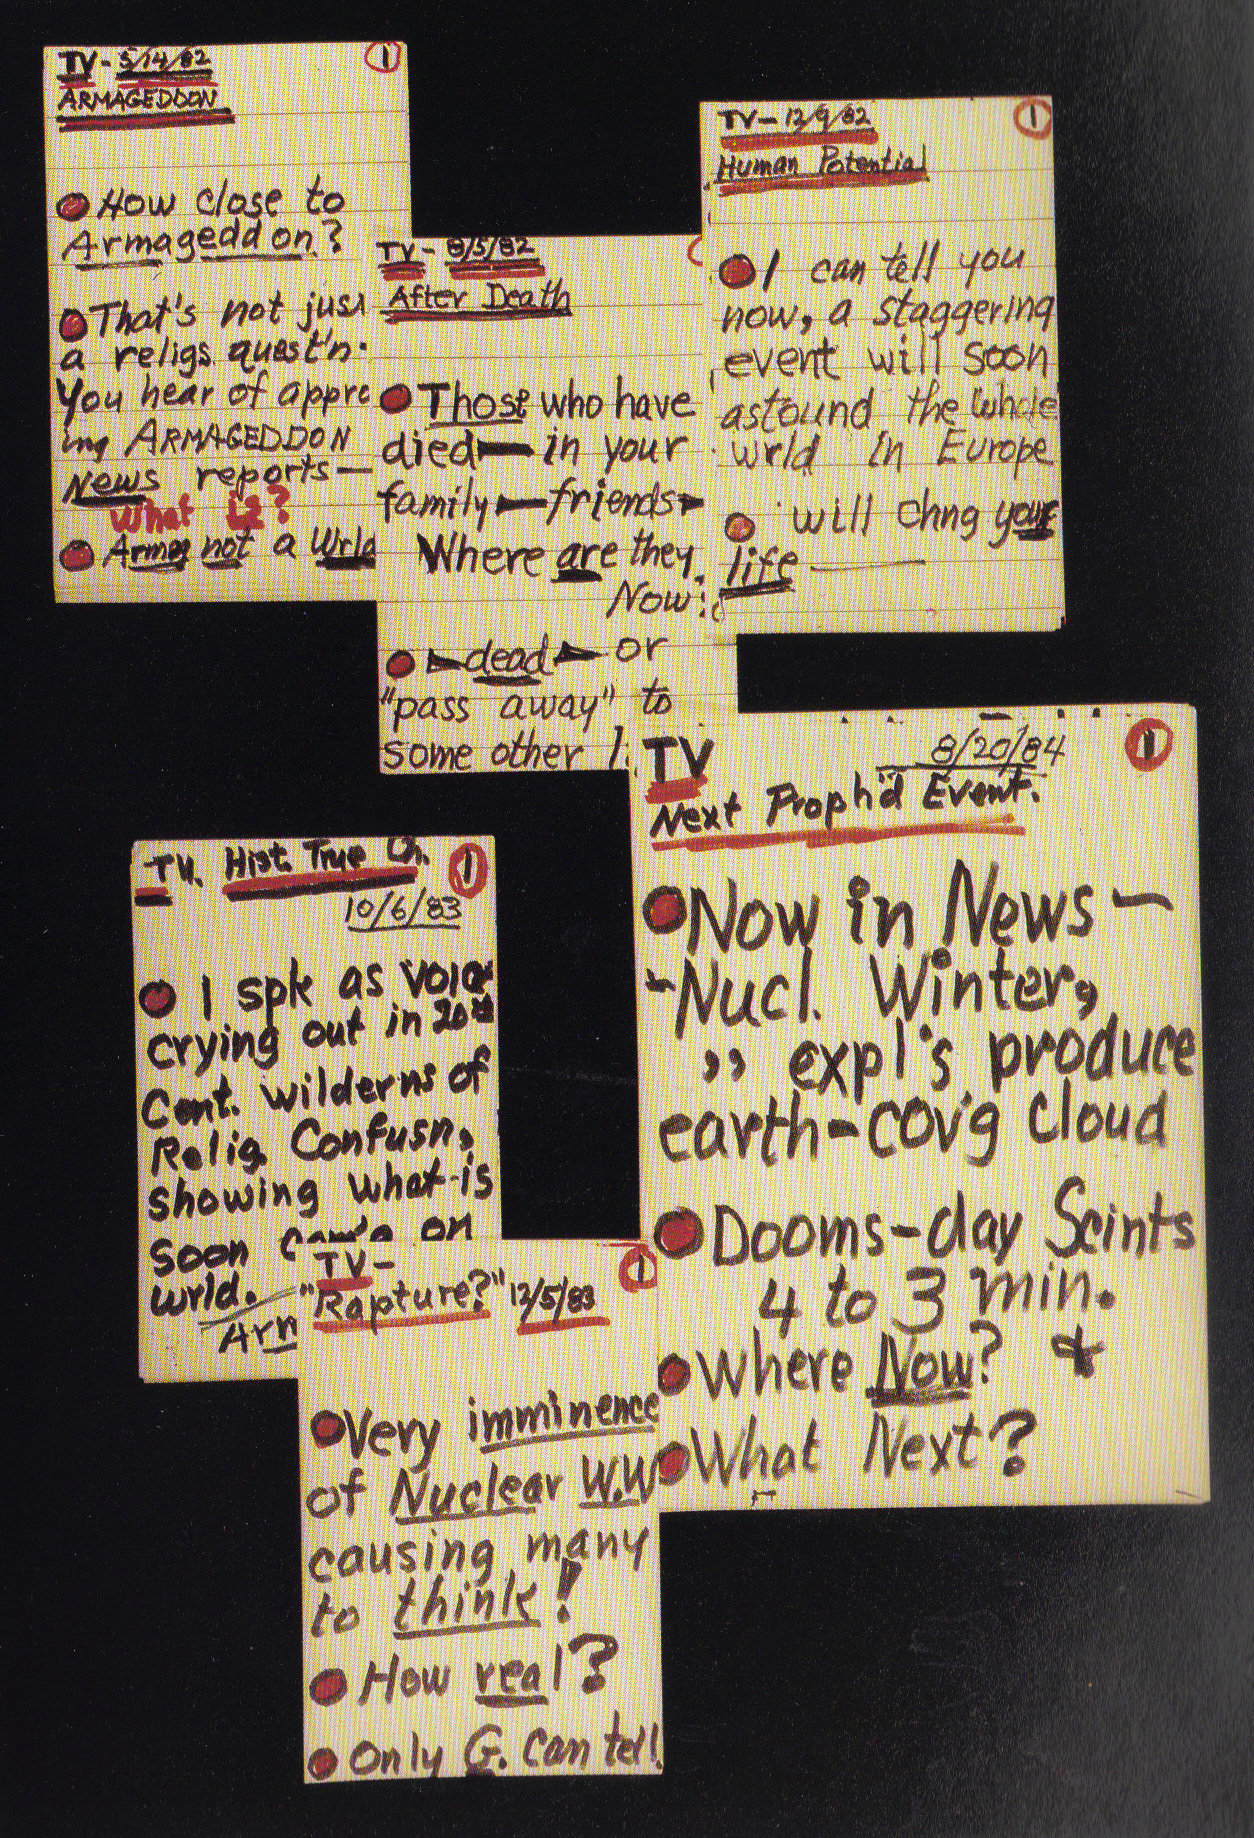 TV - 5/14/82 1
ARMAGEDDON
How close to
Armageddon?
That's not jus
a religs. quest'n.
You hear of appr
ing ARMAGEDDON
News reports —
What is?
Arma not a Wrld
TV - 8/5/82
After Death
Those who have
died — in your
family — friends —
Where are they
Now?
— dead — or
"pass away" to
some other
TV - 12/9/82 1
Human Potential
I can tell you
now, a staggering
event will soon
astound the whole
wrld in Europe
will chng your
life —
TV 8/20/84 1
Next Proph'd Event.
Now in News —
- Nucl. Winter,
,, expl's produce
earth-cov'g cloud
Dooms-day Scints
4 to 3 min.
Where Now? *
What Next?
TV. Hist. True Ch. 1
10/6/83
I spk as voice
crying out in 20th
Cent. wilderns of
Relig. Confusn,
showing what is
soon com'g on
wrld.
Arm
TV - 1
"Rapture?" 12/5/83
Very imminence
of Nuclear W.W
causing many
to think!
How real?
Only G. can tell